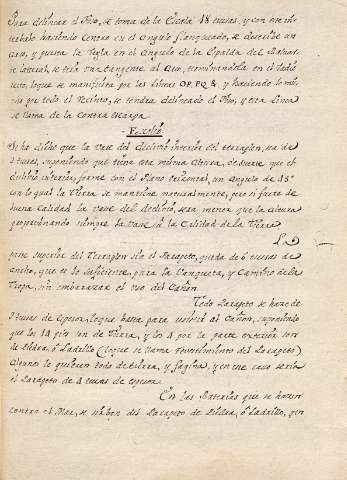 Para delinear el Foso, se toma de la Escala 18 tuesas, y con este in-
tervalo haciendo Centro en el angulo flanqueado, se descrive un
arco, y puesta la Regla en el Angulo de la Espalda del Baluar-
te lateral, se tira una tangente al arco, terminandola en el Radio
recto, loque se manifiesta por las lineas OP, PQ &, y haciendo lo mis-
mo por todo el Recinto, se tendra delineado el Foso, y esta linea
se llama de la Contra escarpa.
Se ha dicho que la vase del declivio interior del terraplen, sea de
3 tuesas, suponiendo que tiene esta misma Altura, de suerte que el
declivio interior, forme con el Plano Orizontal, un Angulo de 45°
con lo qual la Tierra se mantiene naturalmente, pero si fuere de
buena calidad la vase del declivio, sera menor que la altura
proporcionando siempre la vase à la Calidad de la Tierra
La
parte superior del Terraplen sin el Parapeto, queda de 6 tuesas de
ancho, que es lo suficiente, para la Banqueta, y Camino de la
Tropa, sin embarazar el uso del Cañon.
Todo Parapeto se haze de
3 tuesas de Espesor, loque basta para resistir al Cañon, suponiendo
que los 14 pies son de Tierra, y los 4 por la parte exterior son
de Piedra, ò Ladrillo (loque se llama Revestimiento del Parapeto)
Algunos le quieren todo de tierra, y fagina, y en ese caso seria
el Parapeto de 4 tuesas de espesor.
En las Baterias que se hacen
contra el Mar, se haran del Parapeto de Piedra, ò Ladrillo, que